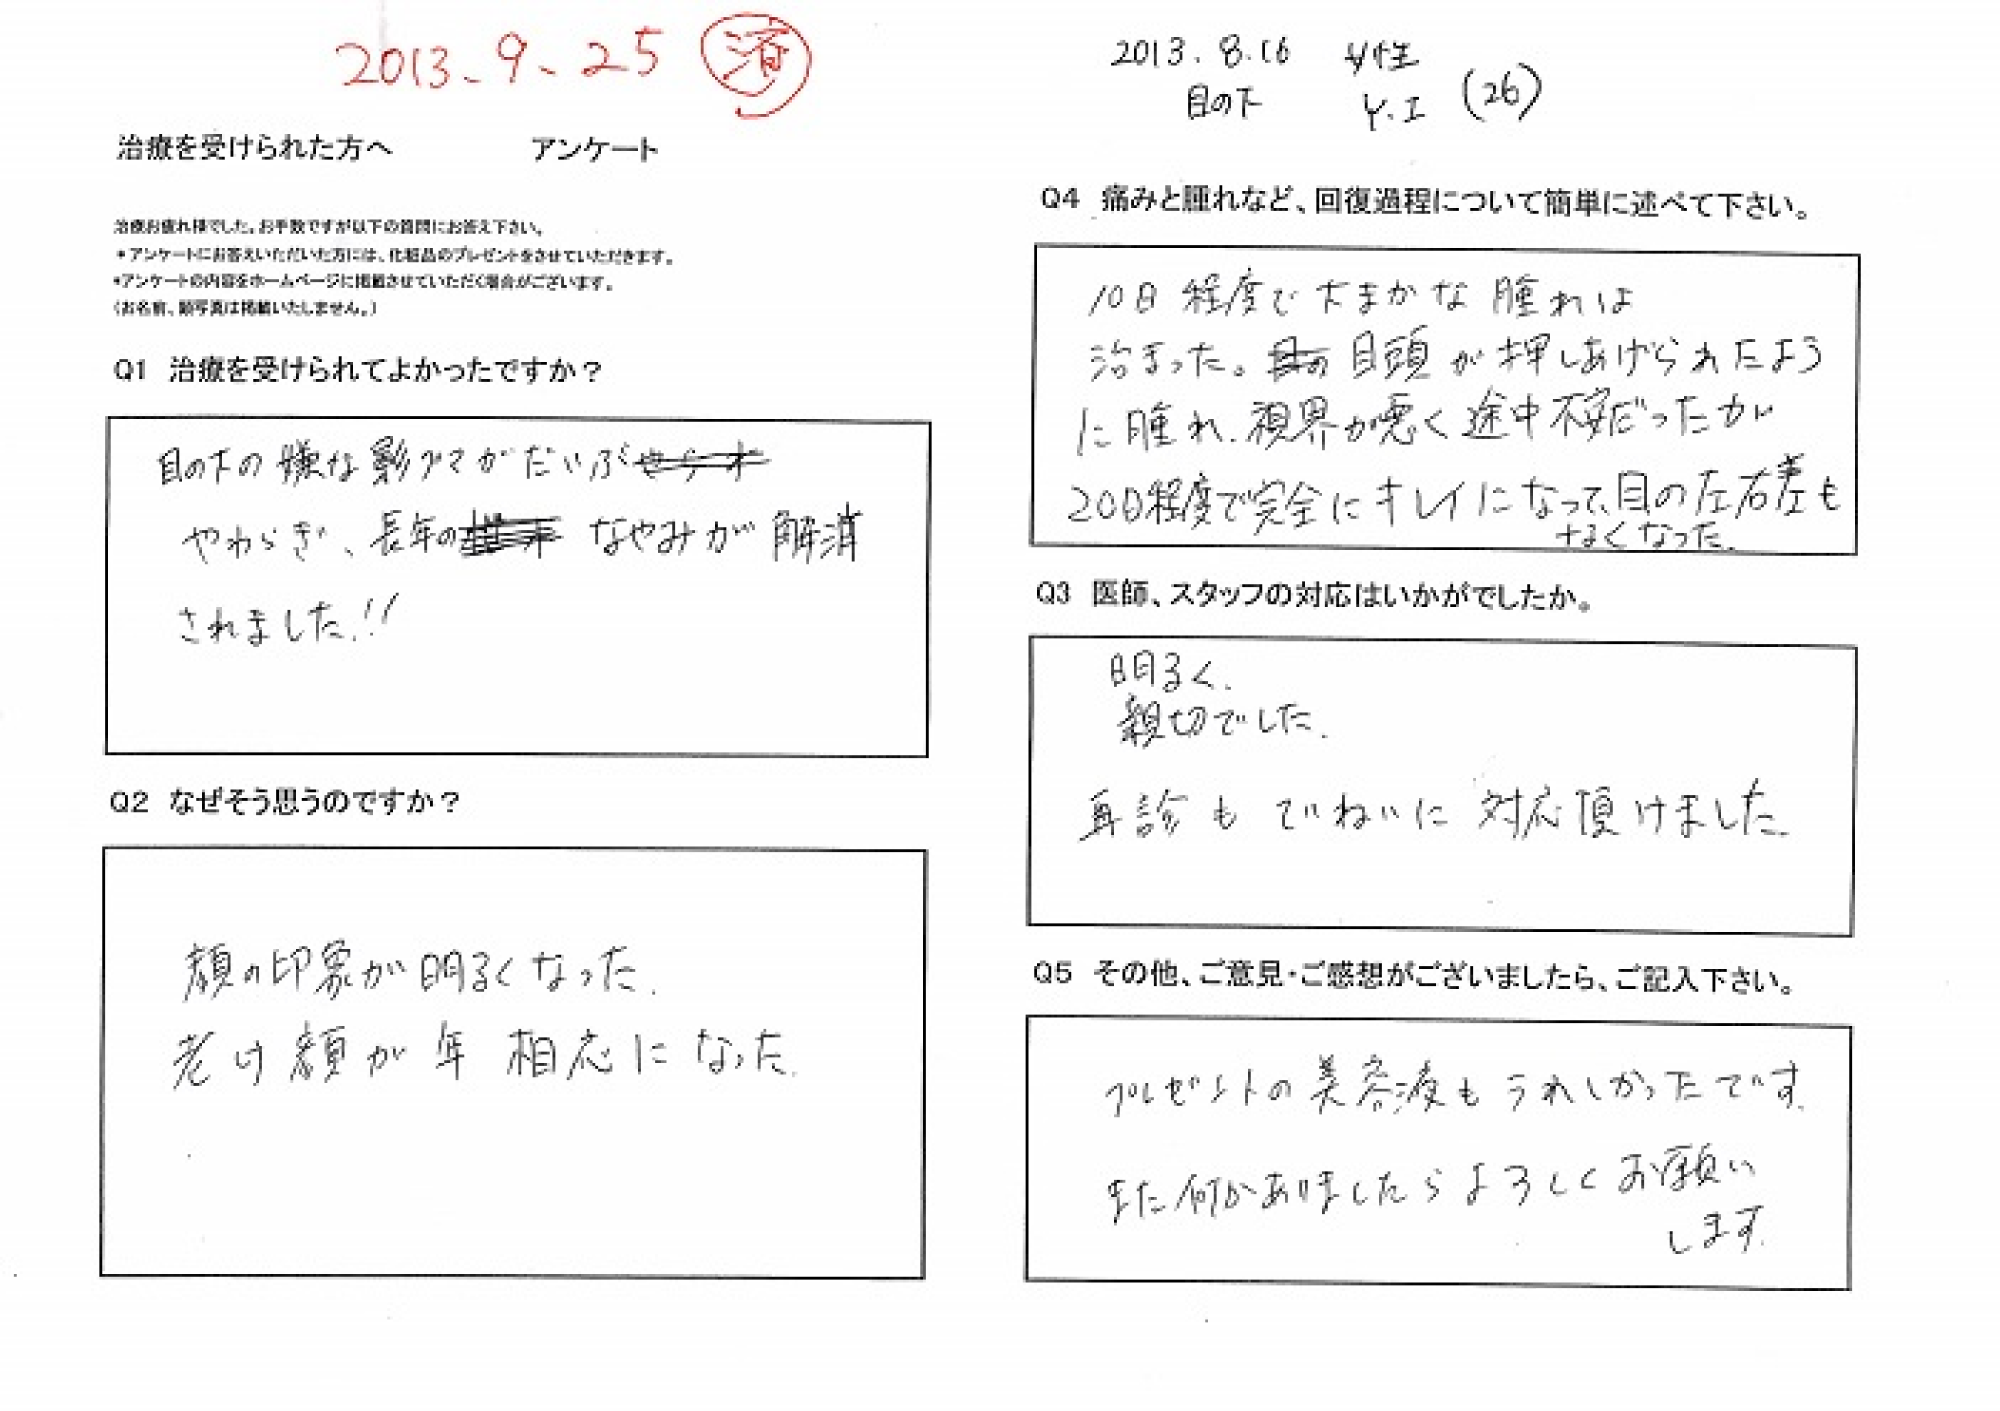 2013.9.25 済
治療を受けられた方へ アンケート
治療お疲れ様でした。お手数ですが以下の質問にお答え下さい。
*アンケートにお答えいただいた方には、化粧品のプレゼントをさせていただきます。
*アンケートの内容をホームページに掲載させていただく場合がございます。
(お名前、顔写真は掲載いたしません。)
Q1 治療を受けられてよかったですか？
目の下の嫌な影クマがだいぶ
やわらぎ、長年の なやみが解消
されました!!
Q2 なぜそう思うのですか？
顔の印象が明るくなった.
老け顔が年相応になった.
2013.8.16 女性
目の下 Y.I (26)
Q4 痛みと腫れなど、回復過程について簡単に述べて下さい。
10日程度で大まかな腫れは
治まった。目頭が押しあげられたよう
に腫れ、視界が悪く途中不安だったが
20日程度で完全にキレイになって、目の左右差も
なくなった.
Q3 医師、スタッフの対応はいかがでしたか。
明るく.
親切でした.
再診もていねいに対応頂けました.
Q5 その他、ご意見・ご感想がございましたら、ご記入下さい。
プレゼントの美容液もうれしかったです.
また何かありましたらよろしくお願い
します.